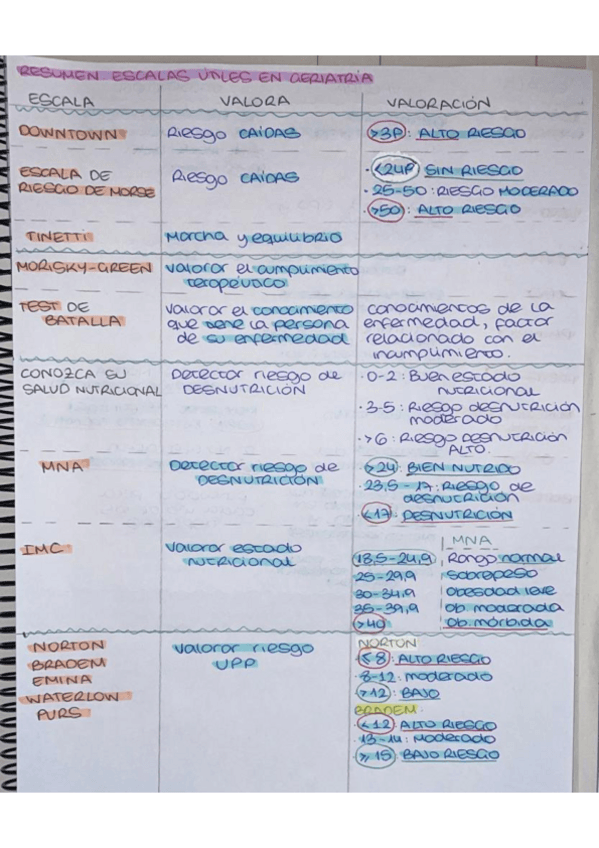 RESUMEN ESCALAS ÚTILES EN GERIATRÍA
ESCALA VALORA VALORACIÓN
DOWNTOWN Riesgo CAÍDAS >3P: ALTO RIESGO
ESCALA DE RIESGO DE MORSE Riesgo CAÍDAS
· <24P SIN RIESGO
· 25-50: RIESGO MODERADO
· >50: ALTO RIESGO
TINETTI Marcha y equilibrio
MORISKY-GREEN valorar el cumplimento
terapéutico
TEST DE
BATALLA
valorar el conocimiento
que tiene la persona
de su enfermedad
conocimientos de la
enfermedad, factor
relacionado con el
incumplimiento.
CONOZCA SU
SALUD NUTRICIONAL
Detectar riesgo de
DESNUTRICIÓN
· 0-2: Buen estado
nutricional
· 3-5: Riesgo desnutrición
moderado
· >6: Riesgo DESNUTRICIÓN
ALTO.
MNA
Detectar riesgo de
DESNUTRICIÓN
· >24: BIEN NUTRIDO
· 23,5-17: Riesgo de
desnutrición
· <17: DESNUTRICIÓN
IMC
valorar estado
nutricional
MNA
18,5-24,9 Rango normal
25-29,9 sobrepeso
30-34,9 obesidad leve
35-39,9 ob. moderada
>40 ob. mórbida
NORTON
BRADEM
EMINA
WATERLOW
PURS
valorar riesgo
UPP
NORTON
· ≤8: ALTO RIESGO
· 8-12: moderado
· >12: BAJO
BRADEM.
· <12 ALTO RIESGO
· 13-14: Moderado
· ≥15 BAJO RIESGO